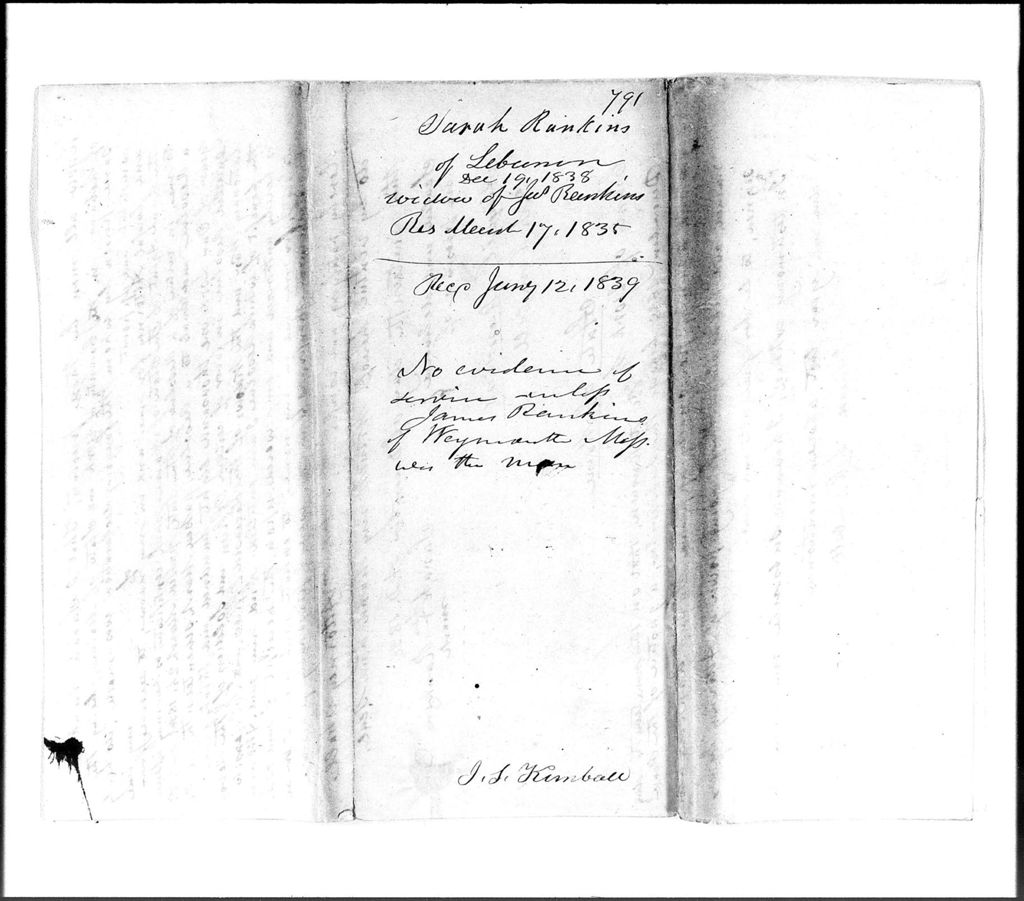 791
Sarah Rankins
of Lebanon
Dec 19, 1838
widow of Jas Rankins
Res March 17, 1835
Rec Jany 12, 1839
No evidence of
service unless
James Rankins
of Weymouth Mass.
was the man
J. S. Kimball